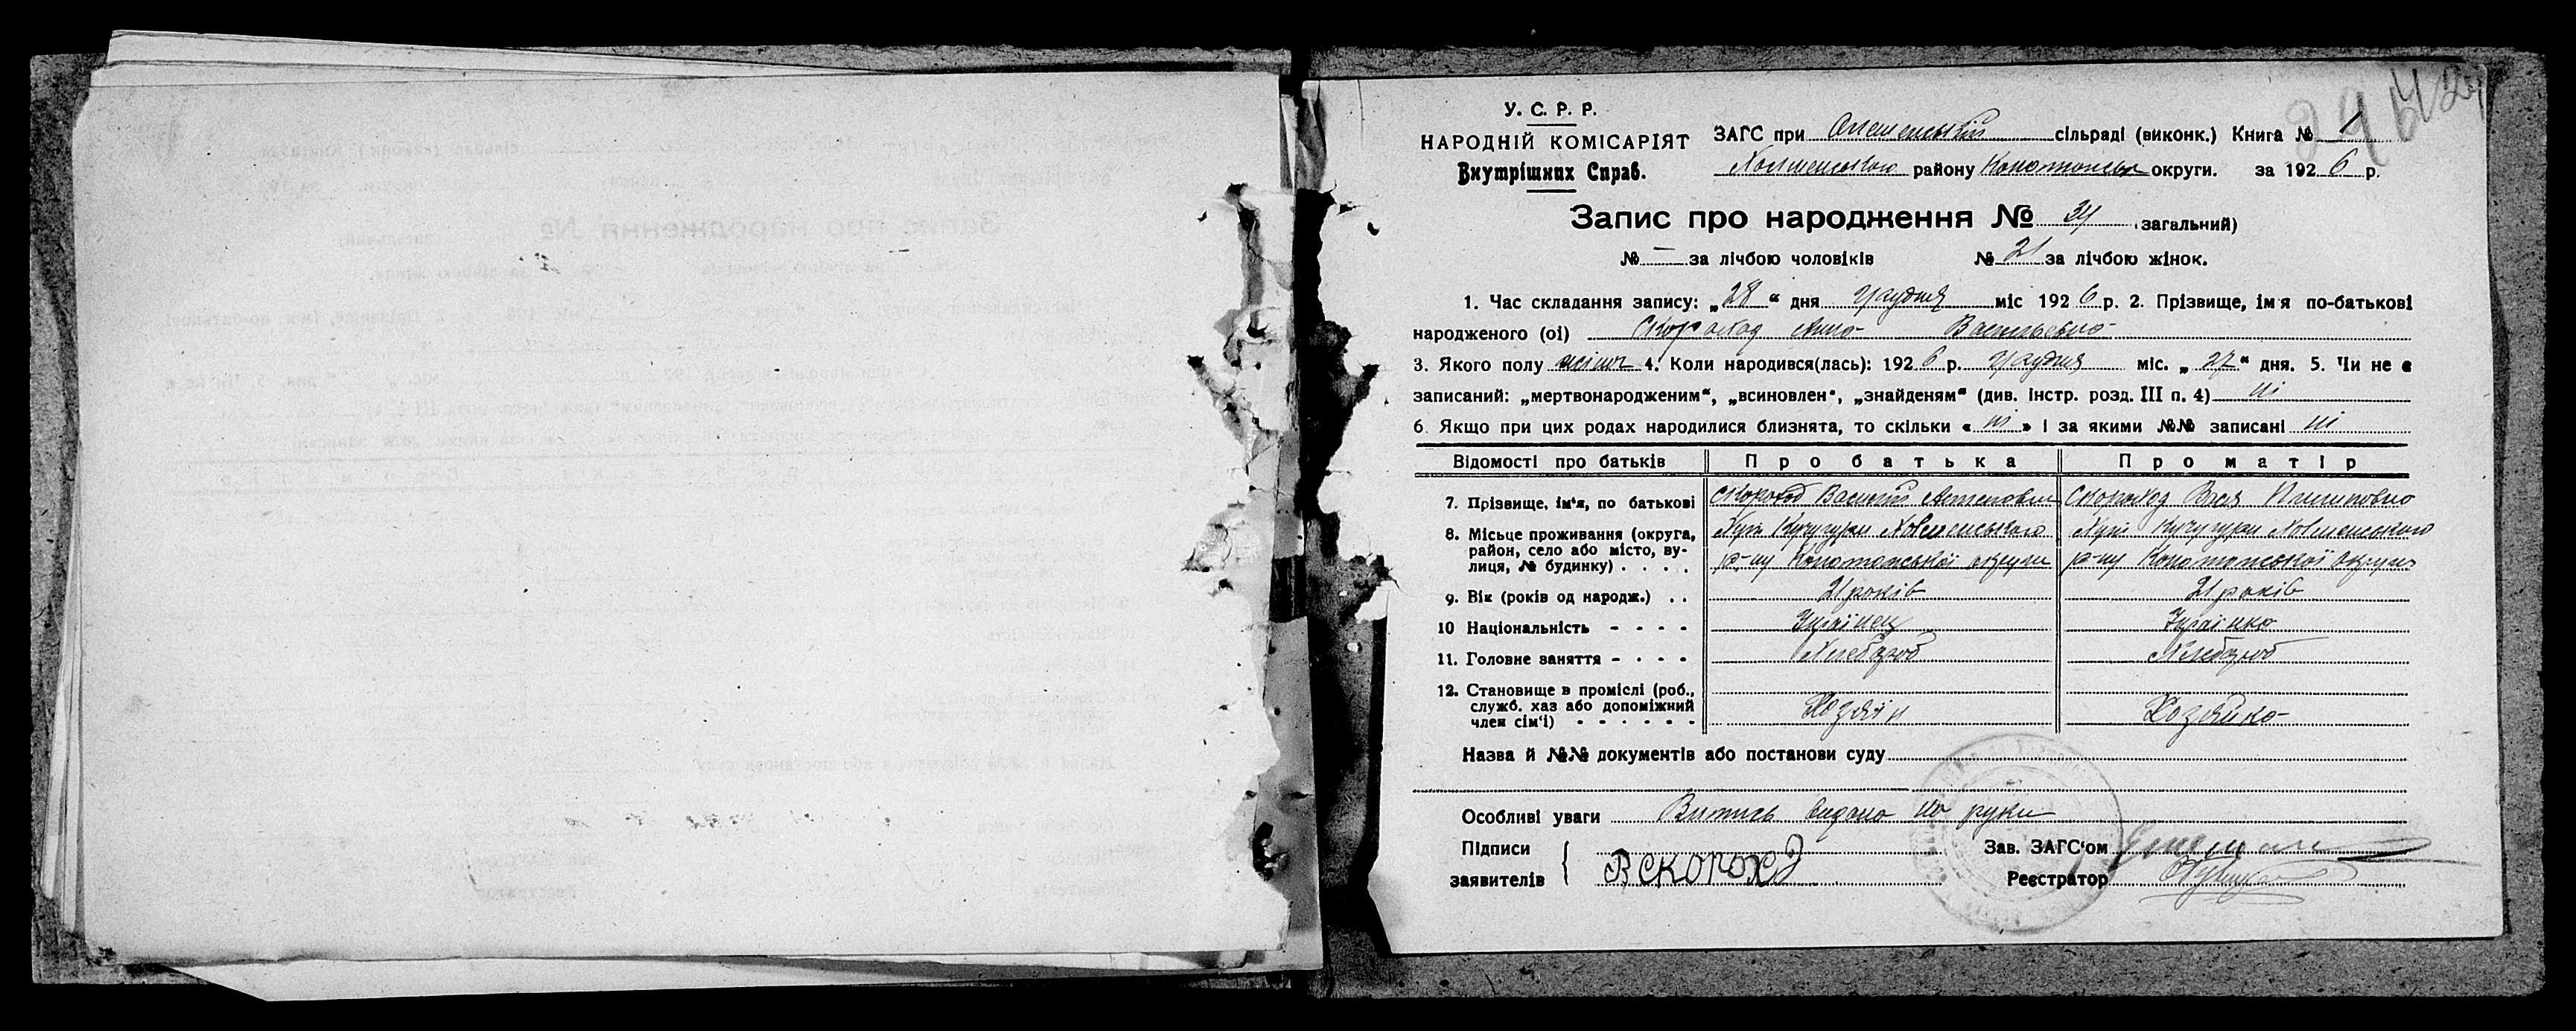 У. С. Р. Р.
НАРОДНІЙ КОМІСАРІЯТ
Внутрішних Справ.
ЗАГС при сільраді (виконк.) Книга № 1
району Конотопськ округи. за 1926 р.
Запис про народження № 34 загальний)
№ — за лічбою чоловіків № 21 за лічбою жінок.
1. Час складання запису: „28“ дня грудня міс 1926 р. 2. Прізвище, імя по-батькові
народженого (ої) Скороход Анна Васильевна
3. Якого полу жіноч 4. Коли народився(лась): 1926 р. грудня міс. „27“ дня. 5. Чи не є
записаний: „мертвонародженим“, „всиновлен“, „знайденям“ (див. інстр. розд. III п. 4) ні
6. Якщо при цих родах народилися близнята, то скільки « ні » і за якими №№ записані ні
Відомості про батьків Про батька Про матір
7. Прізвище, ім'я, по батькові Скороход Василій Скороход Пилиповна
8. Місьце проживання (округа, район, село або місто, вулиця, № будинку) . . . . Хут Кучугури Хут Кучугури
р-ну Конотопської округи р-ну Конотопської округи
9. Вік (років од народж.) . . 21 років 21 років
10 Національність - - - - Українец Українка
11. Головне заняття - - - - Хлебороб Хлебороб
12. Становище в промислі (роб., служб. хаз або допоміжний член сім'ї) - - - - - - Хозяїн Хозяйка
Назва й №№ документів або постанови суду
Особливі уваги Витись видано на руки
Підписи
заявителів { В СКОРОХД
Зав. ЗАГС'ом
Реєстратор